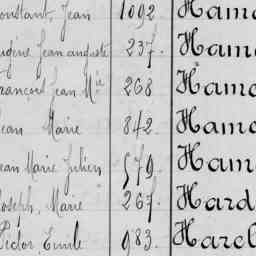 onstant, Jean 1092 Hamo
ugène Jean auguste 237. Hamo
rançois Jean Mie 268 Hamo
ean Marie 842. Hamo
ean Marie Julien 579. Hamo
oseph, Marie 267. Hard
idor, Emile 983. Harel